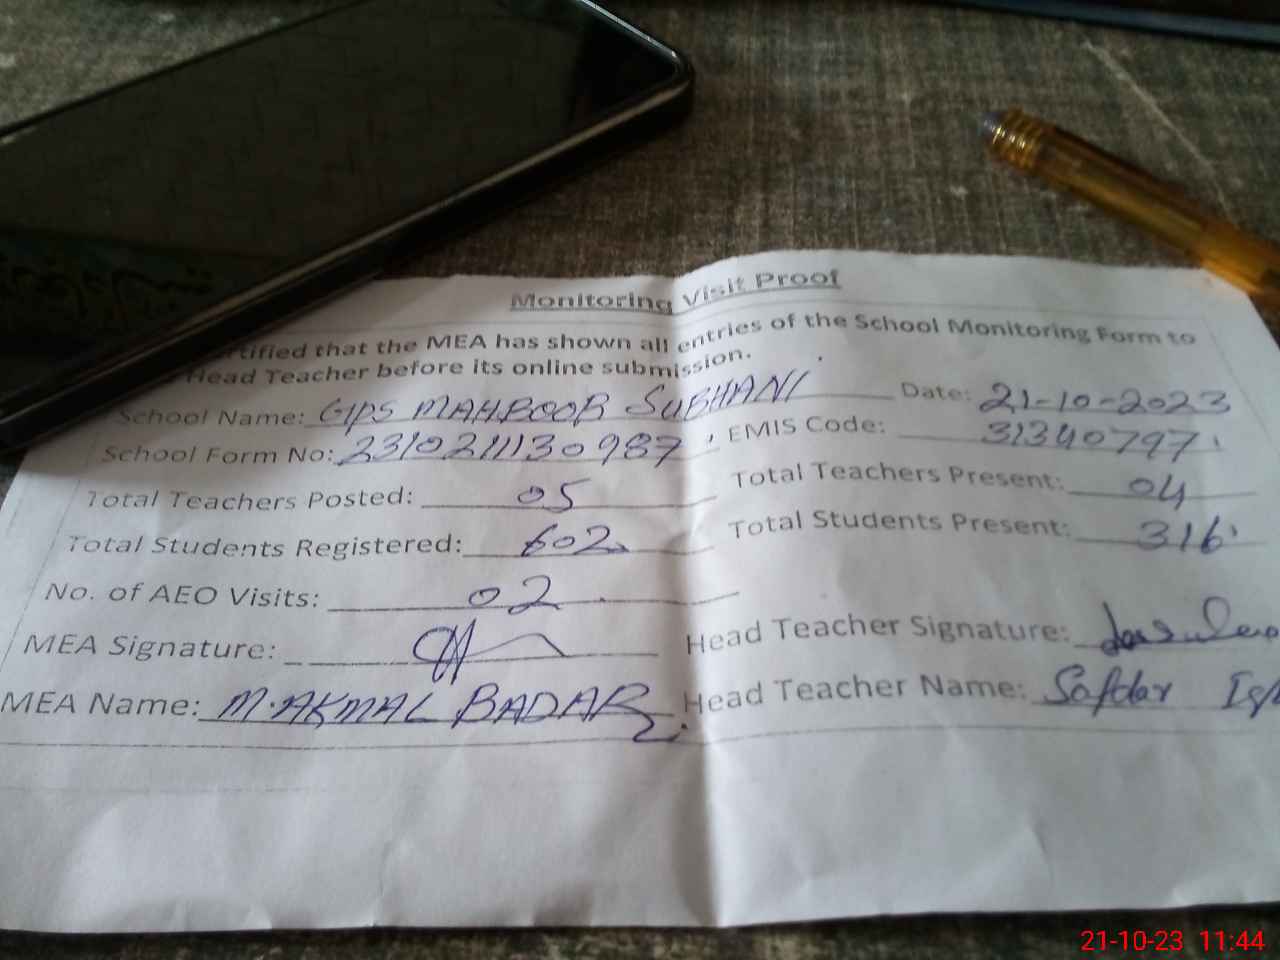 Monitoring Visit Proof
rtified that the MEA has shown all entries of the School Monitoring Form to
Head Teacher before its online submission.
School Name: GPS MAHBOOB SUBHANI Date: 21-10-2023
School Form No: 2310211130987, EMIS Code: 31340797
Total Teachers Posted: 05 Total Teachers Present: 04
Total Students Registered: 602 Total Students Present: 316
No. of AEO Visits: 02
MEA Signature: Head Teacher Signature:
MEA Name: M. AKMAL BADAR Head Teacher Name: Safdar
21-10-23 11:44